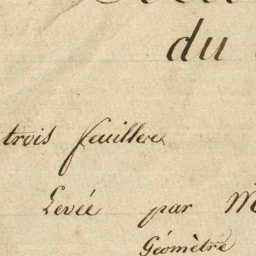 du
trois feuilles
Levée par M
Géomètre